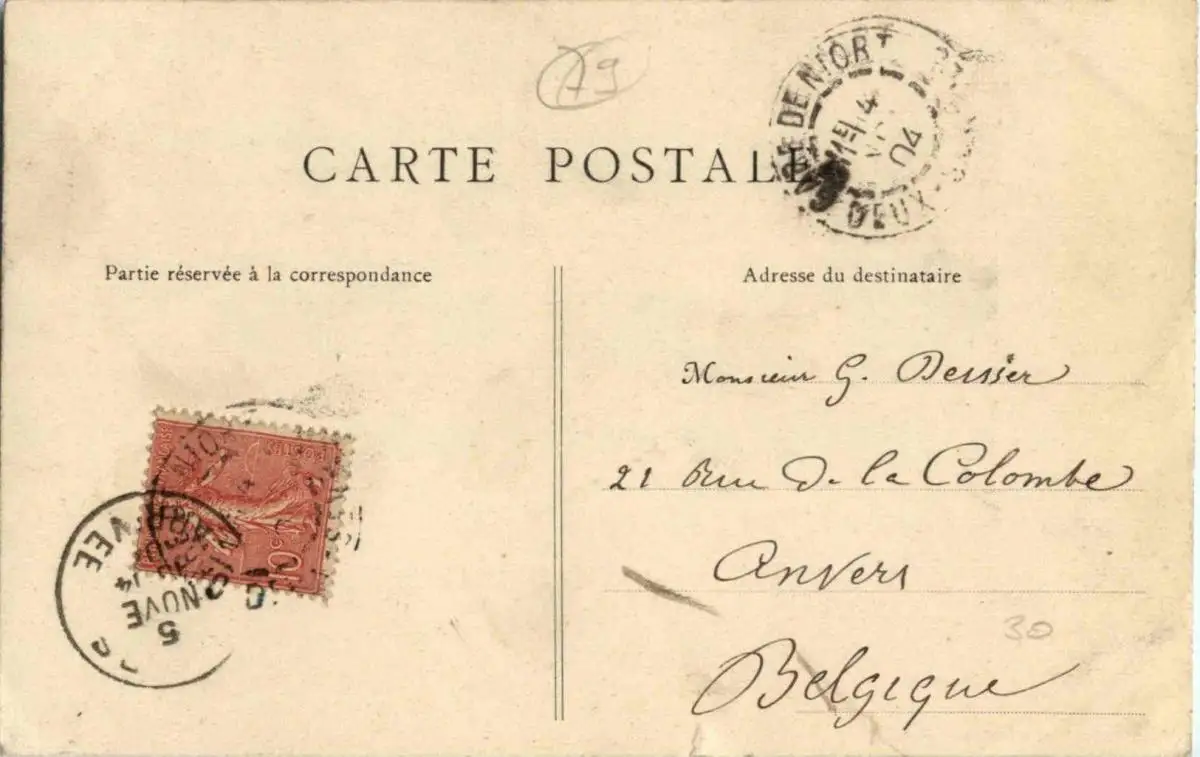 79
GARE DE NIORT
DEUX-
1E
4
04
CARTE POSTALE
Partie réservée à la correspondance
Adresse du destinataire
Monsieur G. Dessier
21 Rue de la Colombe
Anvers
Belgique
30
POSTES
10
5
NOVE
14